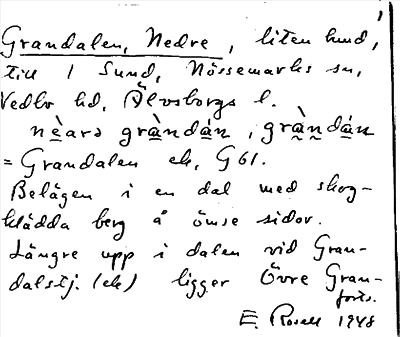 1
Grandalen, Nedre, liten lund,
till 1 Sund, Nössemarks sn,
Vedbo hd, Älvsborgs l.
nèarə gràndán, gràndán
= Grandalen ek, G 61.
Belägen i en dal med skog-
klädda berg å ömse sidor.
Längre upp i dalen vid Gran-
dalstj. (ek) ligger Övre Gran-
forts.
E. Rosell 1948